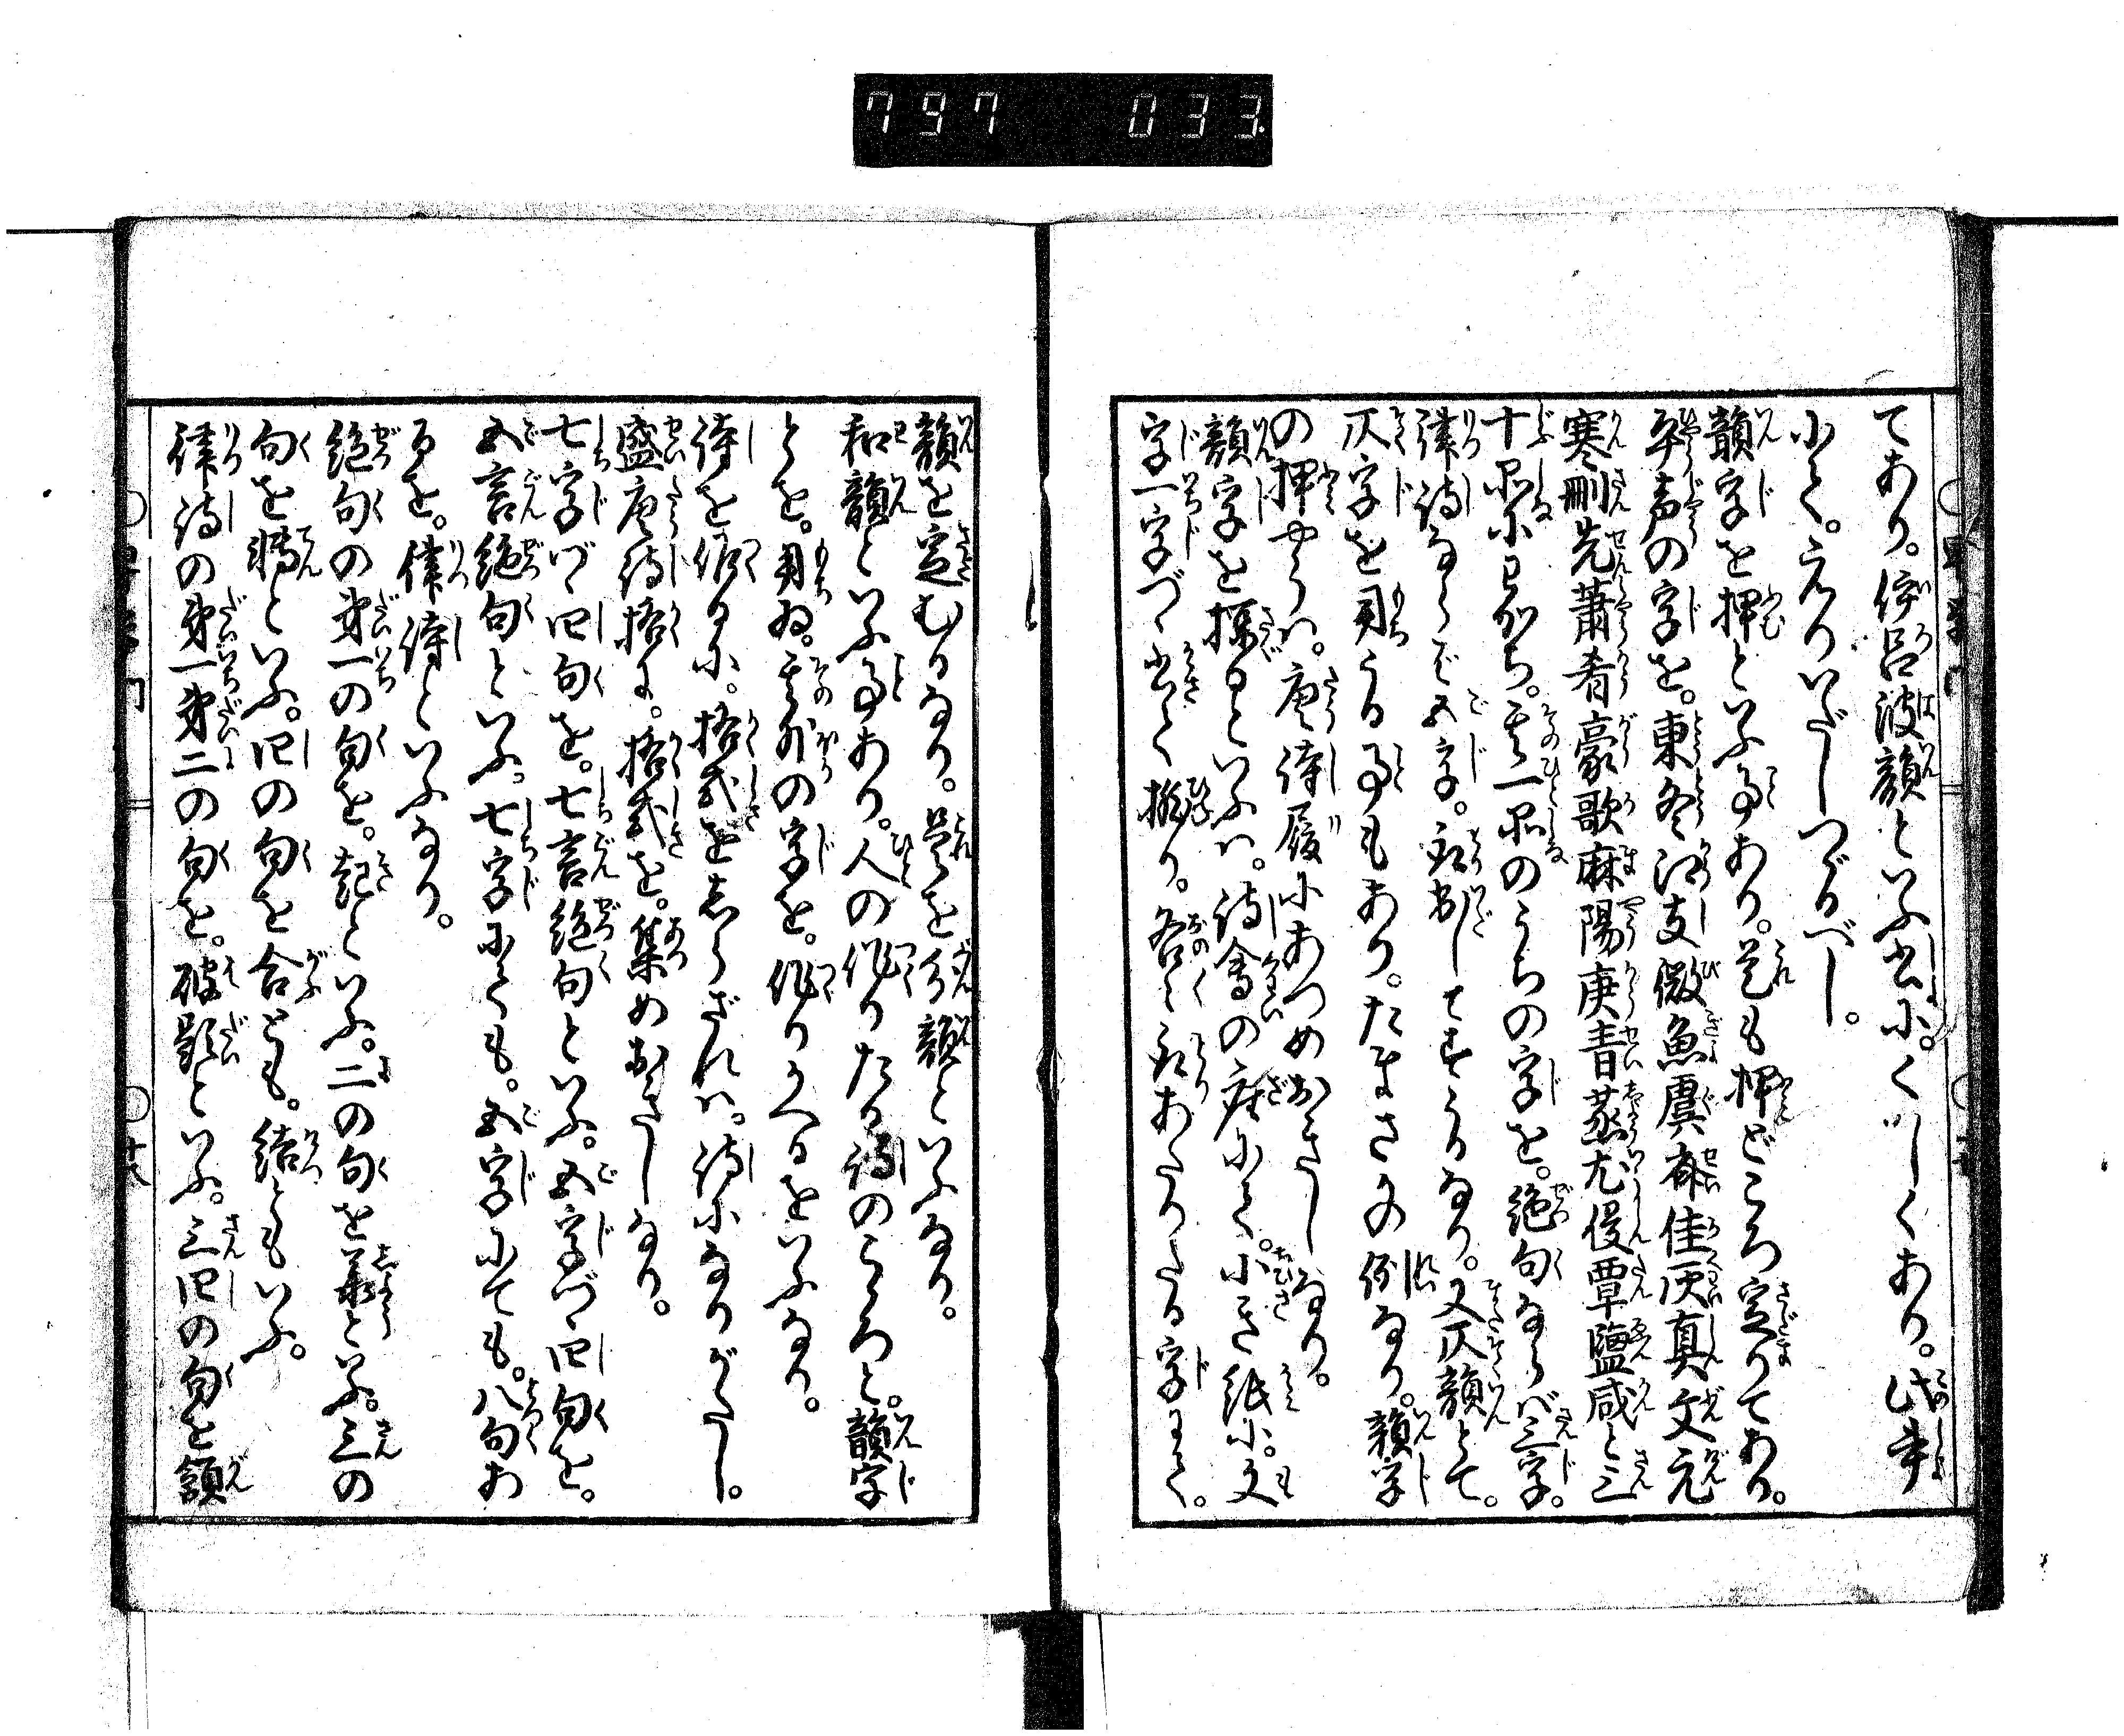 797 033
てあり。伊呂波韻といふ書に。くはしくあり。此書
にて。えりいだしつべし。
韻字を押といふ事あり。是も押どころ定りてあり。
平声の字を。東冬江支微魚虞斉佳灰真文元
寒刪先蕭肴豪歌麻陽庚青蒸尤侵覃鹽咸と三
十品にわかち。其一品のうちの字を。絶句ならバ三字。
律詩ならバ五字。取出してすうるなり。又仄韻とて。
仄字を用うる事もあり。たまさかの例なり。韻字
の押やうハ。唐詩礎にあつめおきしなり。
韻字を探るといふハ。詩會の座にて。小き紙に。文
字一字づゝ書て撚り。各〻取あたりたる字にて。
韻を定むるなり。是を分韻といふなり。
和韻といふ事あり。人の作りたる詩のこゝろと。韻字
とを。用ゐ。其外の字を。作りかへるをいふなり。
詩を作るに。格式をしらざれハ。詩になりがたし。
盛唐詩格に。格式を。集めおきしなり。
七字づゝ四句を。七言絶句といふ。五字づゝ四句を。
五言絶句といふ。七字にても。五字にても。八句あ
るを。律詩といふなり。
絶句の第一の句を。起といふ。二の句を承といふ。三の
句を轉といふ。四の句を合とも。結ともいふ。
律詩の第一第二の句を。破題といふ。三四の句を頷